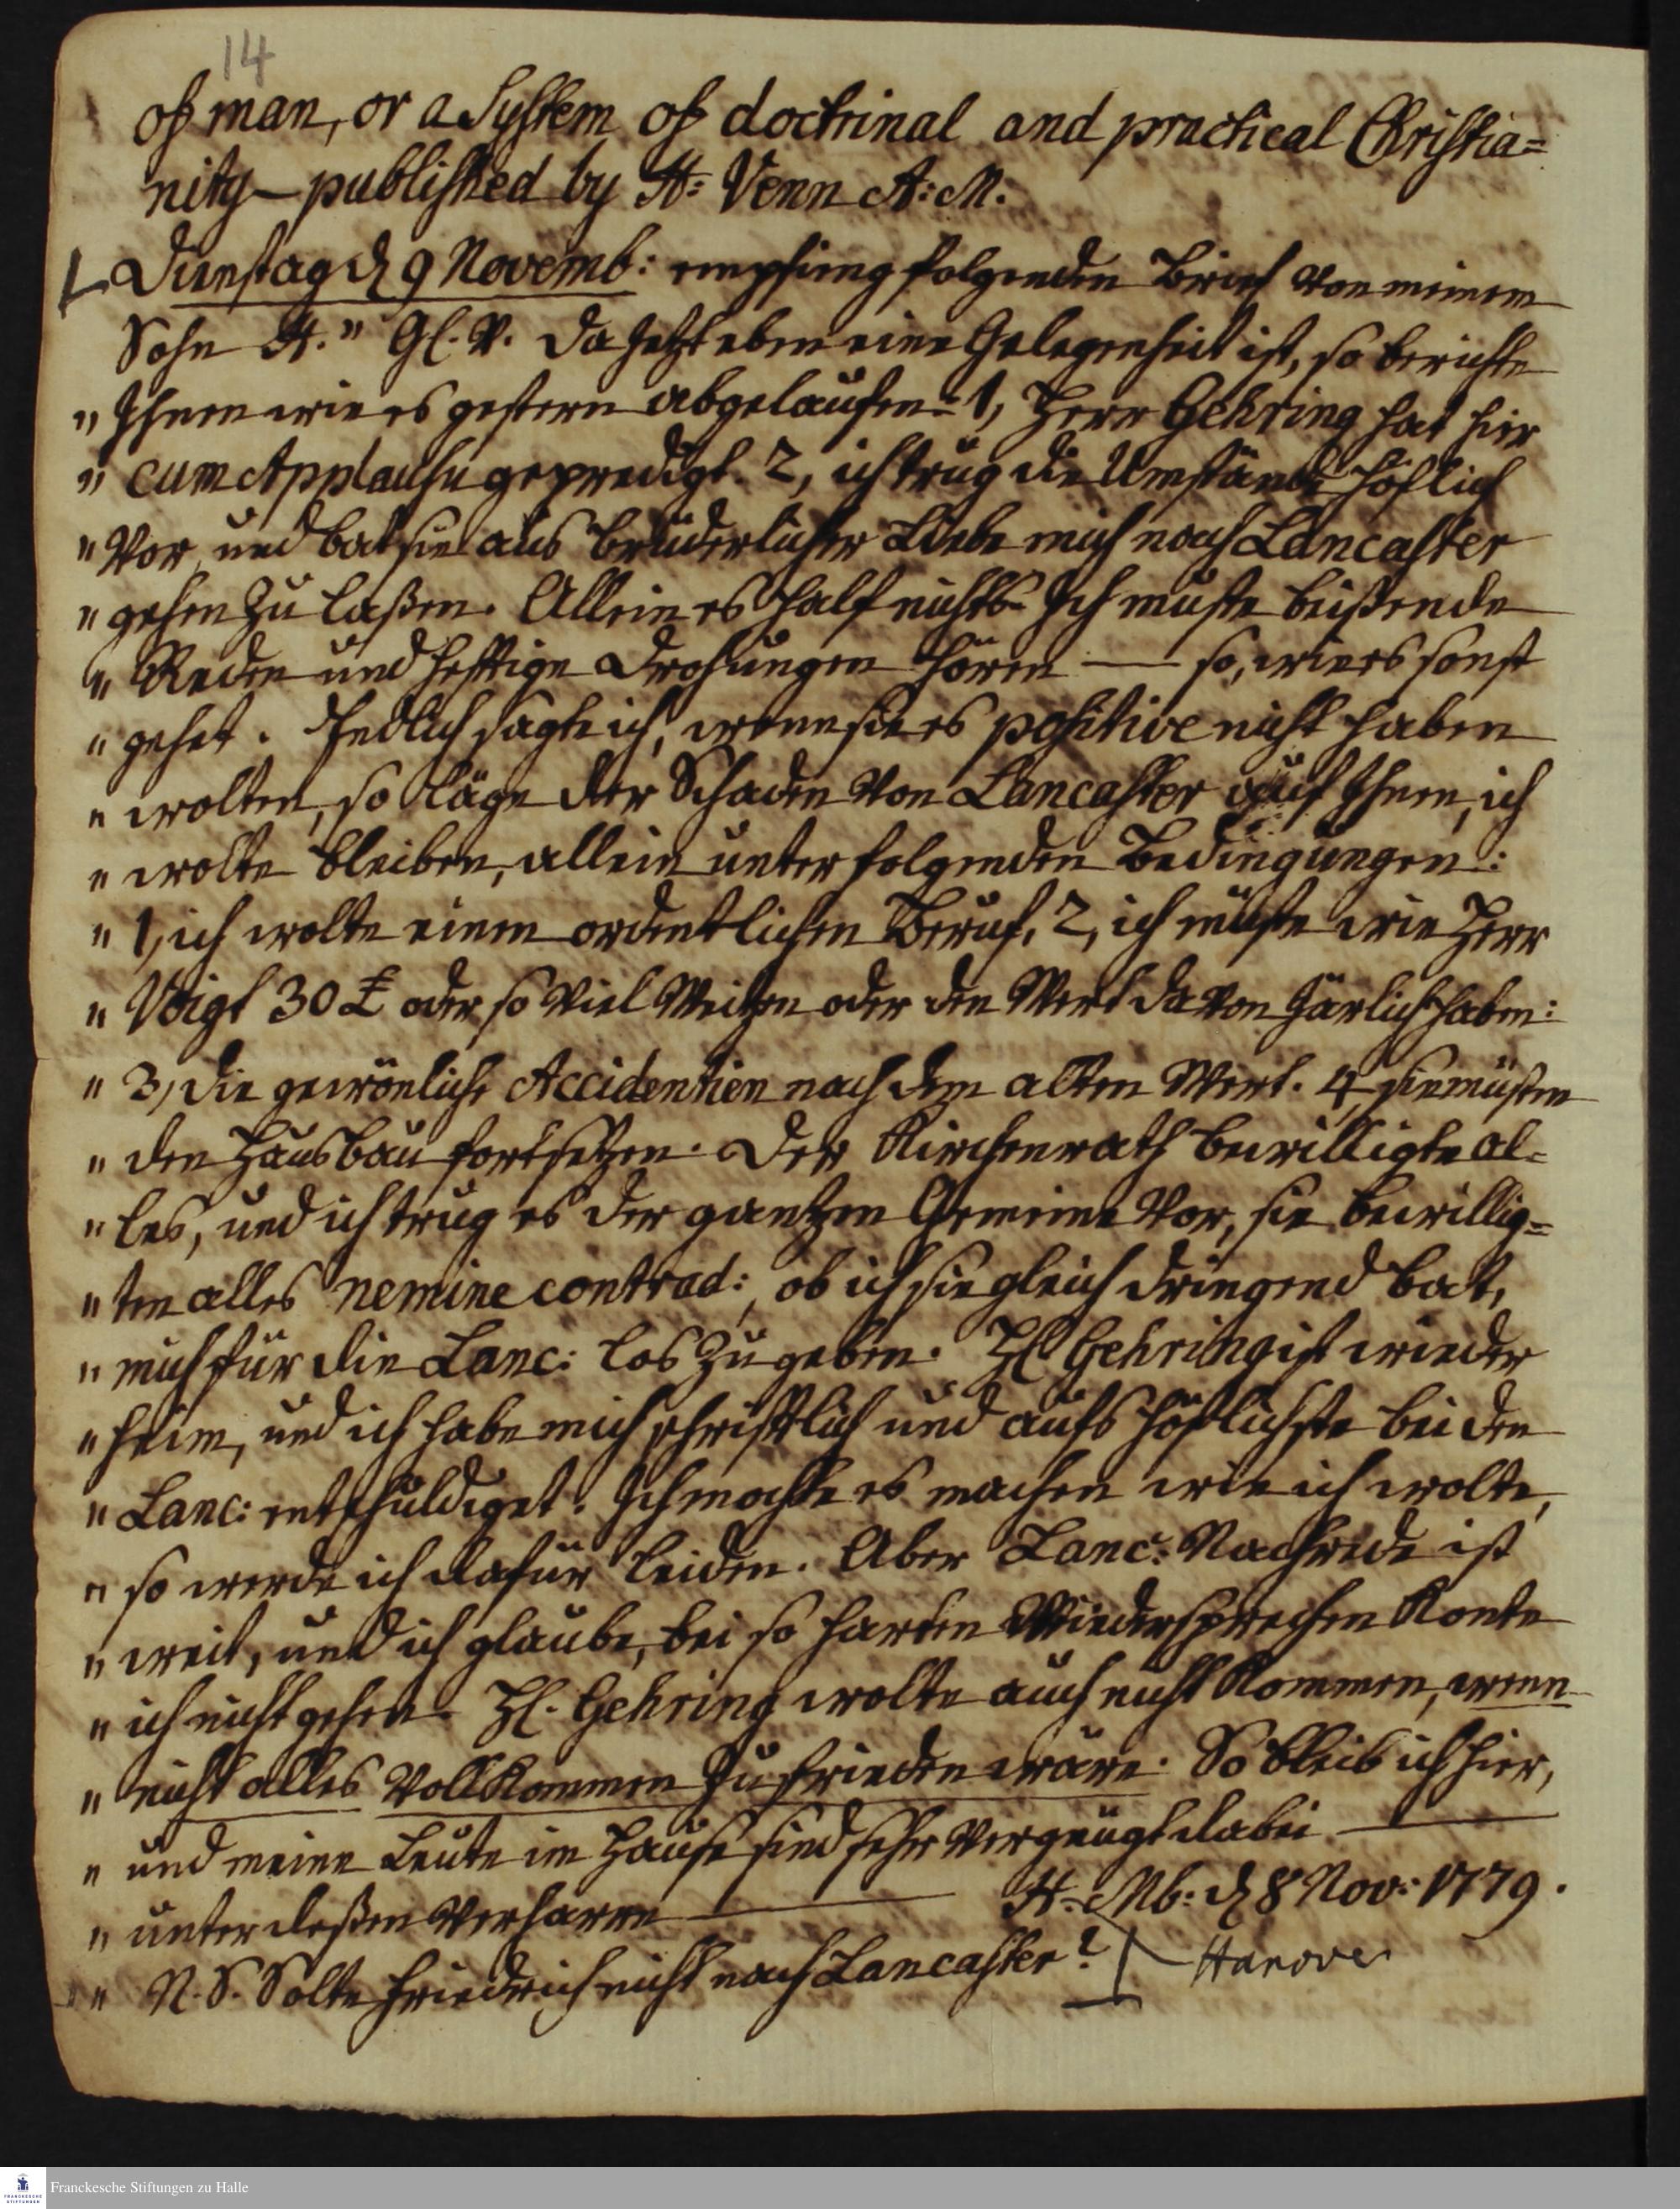 14
of man, or a System of doctrinal and practical Christia=
nity – published by H: Venn A: M:
Dienstag d 9 Novemb: empfieng folgenden Brief von meinem
Sohn H. " Gl. V. Da jetzt eben eine Gelegenheit ist, so berichte
" Ihnen wie es gestern abgelaufen = 1, Herr Gehring hat hier
" cum Applausu geprediget. 2, ich trug die Umstände höflich
" vor, und bat sie aus brüderlicher Liebe mich nach Lancaster
" gehen zu laßen. Allein es half nichts. Ich muste beißende
" Reden und hefftige Drohungen hören — so, wie es sonst
" gehet. Endlich sagte ich, wenn sie es positive nicht haben
" wolten, so läge der Schaden von Lancaster auf Ihnen, ich
" wolte bleiben, allein unter folgenden Bedingungen:
" 1, ich wolte einen ordentlichen Beruf, 2, ich müste wie Herr
" Voigt 30 £ oder so viel Weitzen oder den Wert davon järlich haben:
" 3, die gewönliche Accidentien nach dem alten Wert. 4, sie müsten
" den Hausbau fortsetzen. Der Kirchenrath bewilligte al=
" les, und ich trug es der gantzen Gemeine vor, sie bewillig=
" ten alles nemine contrad:, ob ich sie gleich dringend bat,
" mich für die Lanc: los zu geben. H Gehring ist wieder
" heim, und ich habe mich schrifftlich und aufs höflichste bei den
" Lanc: entschuldiget. Ich mochte es machen wie ich wolte,
" so werde ich dafür leiden. Aber Lanc: Nachrede ist
" weit, und ich glaube, bei so harten Wiedersprechen konte
" ich nicht gehen. H. Gehring wolte auch nicht kommen, wenn
" nicht alles vollkommen zufrieden wäre. So bleib ich hier,
" und meine Leute im Hause sind sehr vergnügt dabei —
" unter deßen verharre — H. Mb: d 8 Nov: 1779.
" N. S. Solte Friedrich nicht nach Lancaster? Hanover
Franckesche Stiftungen zu Halle
FRANCKESCHE
STIFTUNGEN